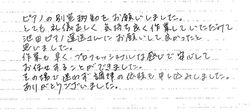 ピアノの引越移動をお願いしました。
とても礼儀正しく、気持ち良く作業していただけて
池田ピアノ運送さんにお願いして良かったと
思いました。
作業も早く、プロフェッショナルな感じで安心して
お任せすることができました。
その場で迷わず調律の依頼も申し込みしました。
ありがとうございました。